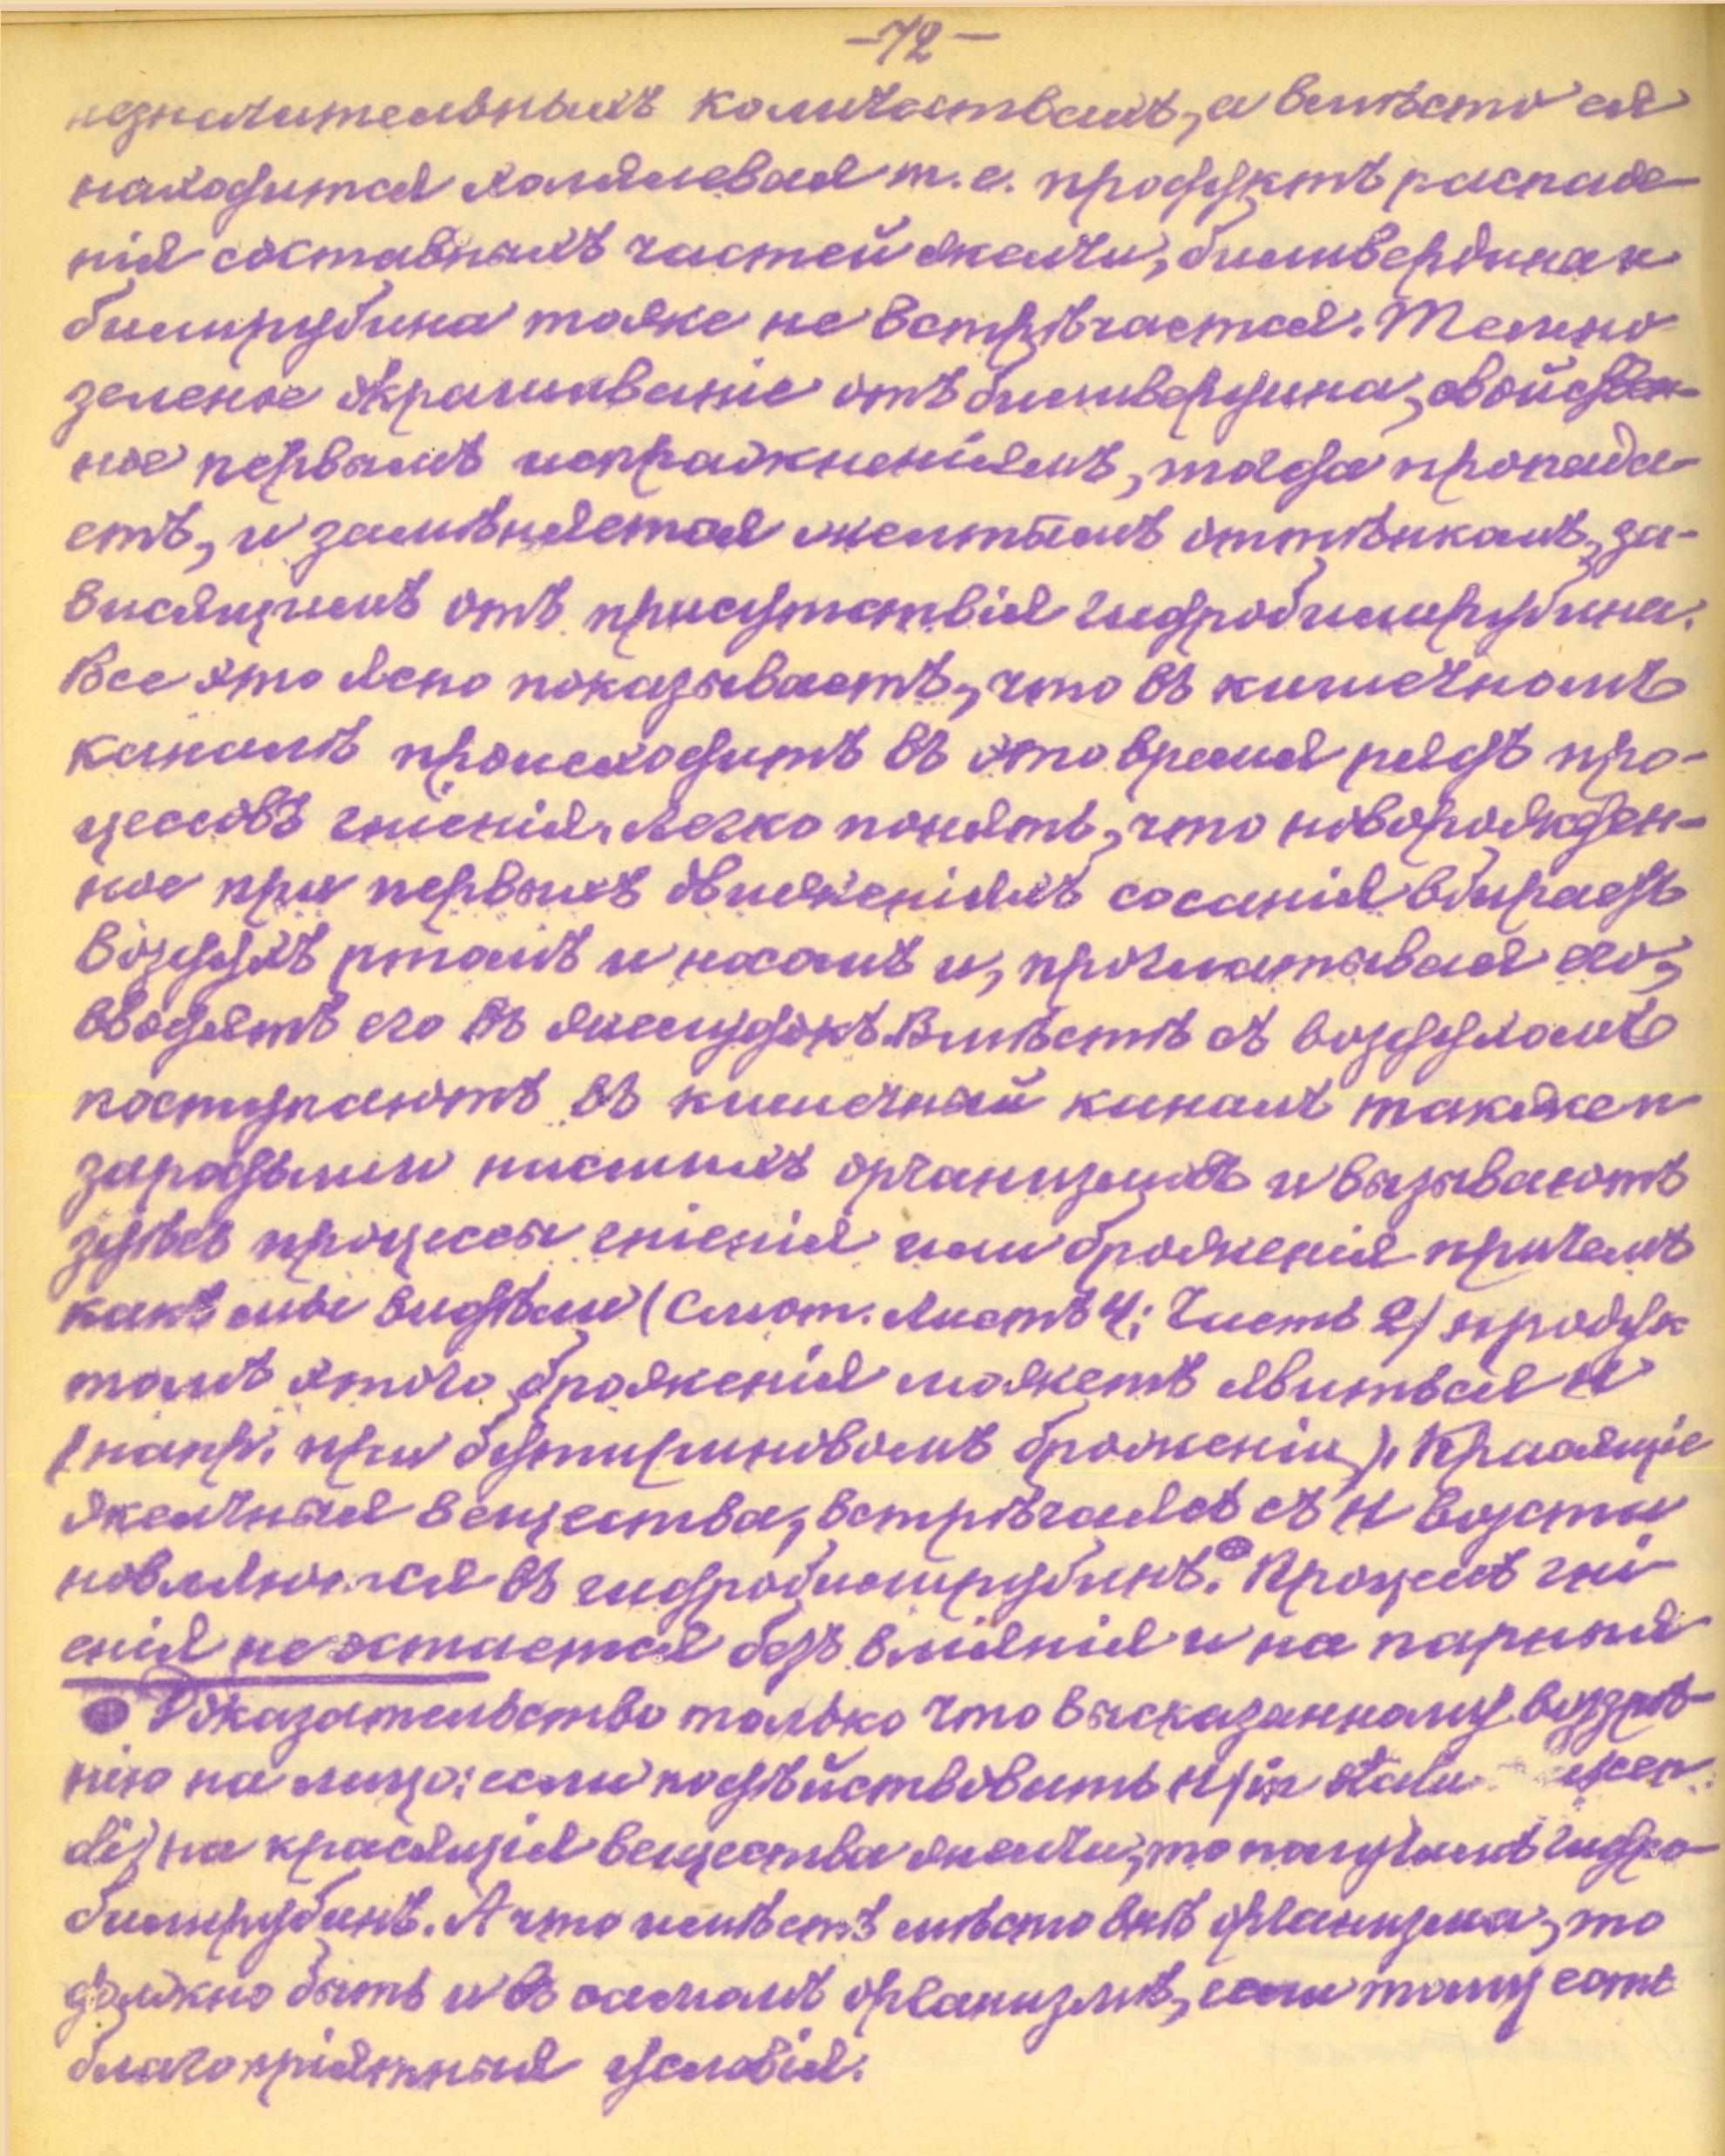 -72-
незначительныхъ количествахъ, а вмѣсто ея
находится холялевая т.е. продуктъ распаде-
нія составныхъ частей желчи, биливердина и
билирубина тоже не встрѣчается. Темно
зеленое окрашиваніе отъ биливердина, свойствен-
ное первымъ испражненіямъ, тогда пропада-
етъ, и замѣняется желтымъ оттѣнкомъ, за-
висящимъ отъ присутствія гидробилирубина.
Все это ясно показываетъ, что въ кишечномъ
каналѣ происходитъ въ это время рядъ про-
цессовъ гніенія. Легко понять, что новорожден-
ное при первыхъ движеніяхъ сосанія вбираетъ
воздухъ ртомъ и носомъ и, проглатывая его,
вводятъ его въ желудокъ. Вмѣстѣ съ воздухомъ
поступаютъ въ кишечный каналъ также и
зародыши низшихъ организмовъ и вызываютъ
здѣсь процессы гніенія или броженія причемъ
какъ мы видѣли (Смот. Листъ 4; Часть 2) продук
томъ этого броженія можетъ явиться H
(напр. при бутириновомъ броженіи). Красящіе
желчныя вещества, встрѣчаясь съ H возста
новляются въ гидробилирубинъ. ⊕ Процессъ гні
енія не остается безъ вліянія и на парныя
⊕ Доказательство только что высказанному воззрѣ-
нію на лицо: если подѣйствовать H (in statu nascen
di) на красящія вещества желчи, то получимъ гидро-
билирубинъ. А что имѣетъ мѣсто внѣ организма, то
должно быть и въ самомъ организмѣ, если тому есть
благопріятныя условія.